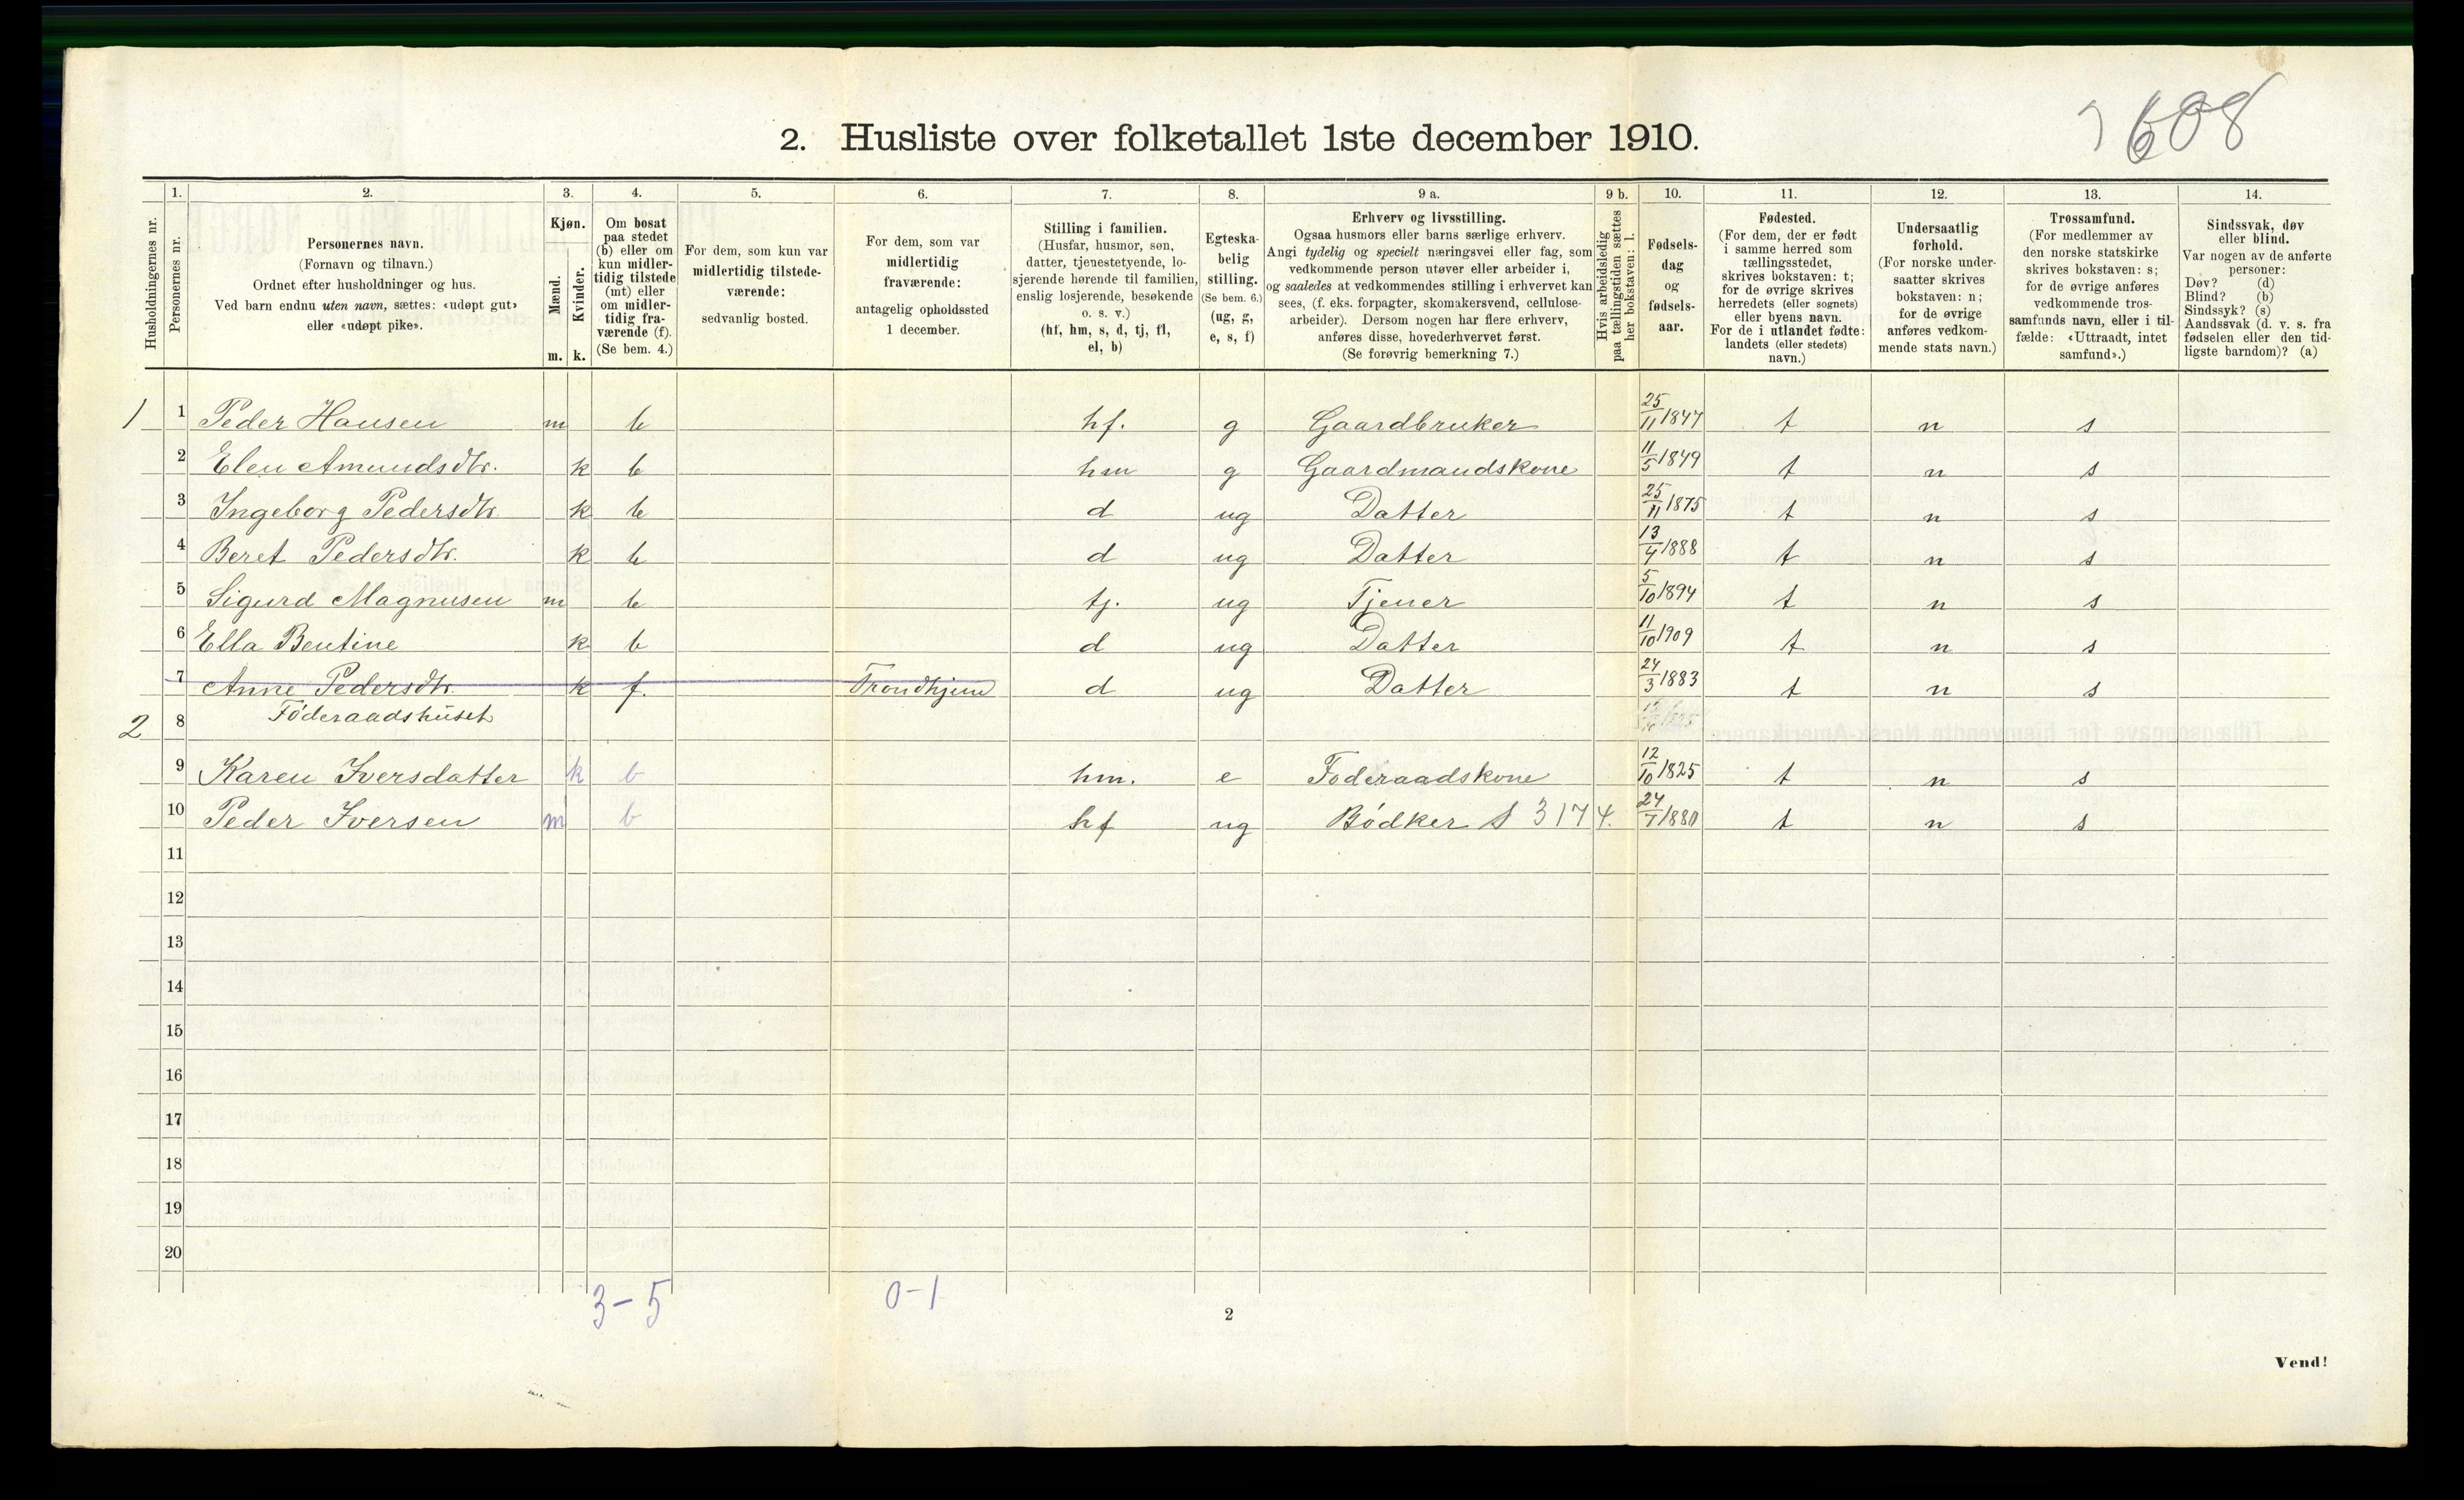 608
2. Husliste over folketallet 1ste december 1910.
Husholdningernes nr.
1. Personernes nr.
2. Personernes navn.
(Fornavn og tilnavn.)
Ordnet efter husholdninger og hus.
Ved barn endnu uten navn, sættes: «udøpt gut»
eller «udøpt pike».
3. Kjøn.
Mænd. m.
Kvinder. k.
4. Om bosat
paa stedet
(b) eller om
kun midler-
tidig tilstede
(mt) eller
om midler-
tidig fra-
værende (f).
(Se bem. 4.)
5. For dem, som kun var
midlertidig tilstede-
værende:
sedvanlig bosted.
6. For dem, som var
midlertidig
fraværende:
antagelig opholdssted
1 december.
7. Stilling i familien.
(Husfar, husmor, søn,
datter, tjenestetyende, lo-
sjerende hørende til familien,
enslig losjerende, besøkende
o. s. v.)
(hf, hm, s, d, tj, fl,
el, b)
8. Egteska-
belig
stilling.
(Se bem. 6.)
(ug, g,
e, s, f)
9 a. Erhverv og livsstilling.
Ogsaa husmors eller barns særlige erhverv.
Angi tydelig og specielt næringsvei eller fag, som
vedkommende person utøver eller arbeider i,
og saaledes at vedkommendes stilling i erhvervet kan
sees, (f. eks. forpagter, skomakersvend, cellulose-
arbeider). Dersom nogen har flere erhverv,
anføres disse, hovederhvervet først.
(Se forøvrig bemerkning 7.)
9 b. Hvis arbeidsledig
paa tællingstiden sættes
her bokstaven: l.
10. Fødsels-
dag
og
fødsels-
aar.
11. Fødested.
(For dem, der er født
i samme herred som
tællingsstedet,
skrives bokstaven: t;
for de øvrige skrives
herredets (eller sognets)
eller byens navn.
For de i utlandet fødte:
landets (eller stedets)
navn.)
12. Undersaatlig
forhold.
(For norske under-
saatter skrives
bokstaven: n;
for de øvrige
anføres vedkom-
mende stats navn.)
13. Trossamfund.
(For medlemmer av
den norske statskirke
skrives bokstaven: s;
for de øvrige anføres
vedkommende tros-
samfunds navn, eller i til-
fælde: «Uttraadt, intet
samfund».)
14. Sindssvak, døv
eller blind.
Var nogen av de anførte
personer:
Døv? (d)
Blind? (b)
Sindssyk? (s)
Aandssvak (d. v. s. fra
fødselen eller den tid-
ligste barndom)? (a)
1 1 Peder Hansen m b hf. g Gaardbruker 25/11 1847 t n s
2 Elen Amundsdtr. k b hm g Gaardmandskone 11/5 1849 t n s
3 Ingeborg Pedersdtr k b d ug Datter 25/11 1875 t n s
4 Beret Pedersdtr. k b d ug Datter 13/4 1888 t n s
5 Sigurd Magnusen m b tj. ug Tjener 5/10 1894 t n s
6 Ella Bentine k b d ug Datter 11/10 1909 t n s
7 Anne Pedersdtr. k f. Trondhjem d ug Datter 24/3 1883 t n s
2 8 Föderaadshuset
9 Karen Iversdatter k b hm. e Föderaadskone 12/10 1825 t n s
10 Peder Iversen m b hf ug Bödker S 3174. 24/7 1880 t n s
11
12
13
14
15
16
17
18
19
20
3-5 0-1
2
Vend!